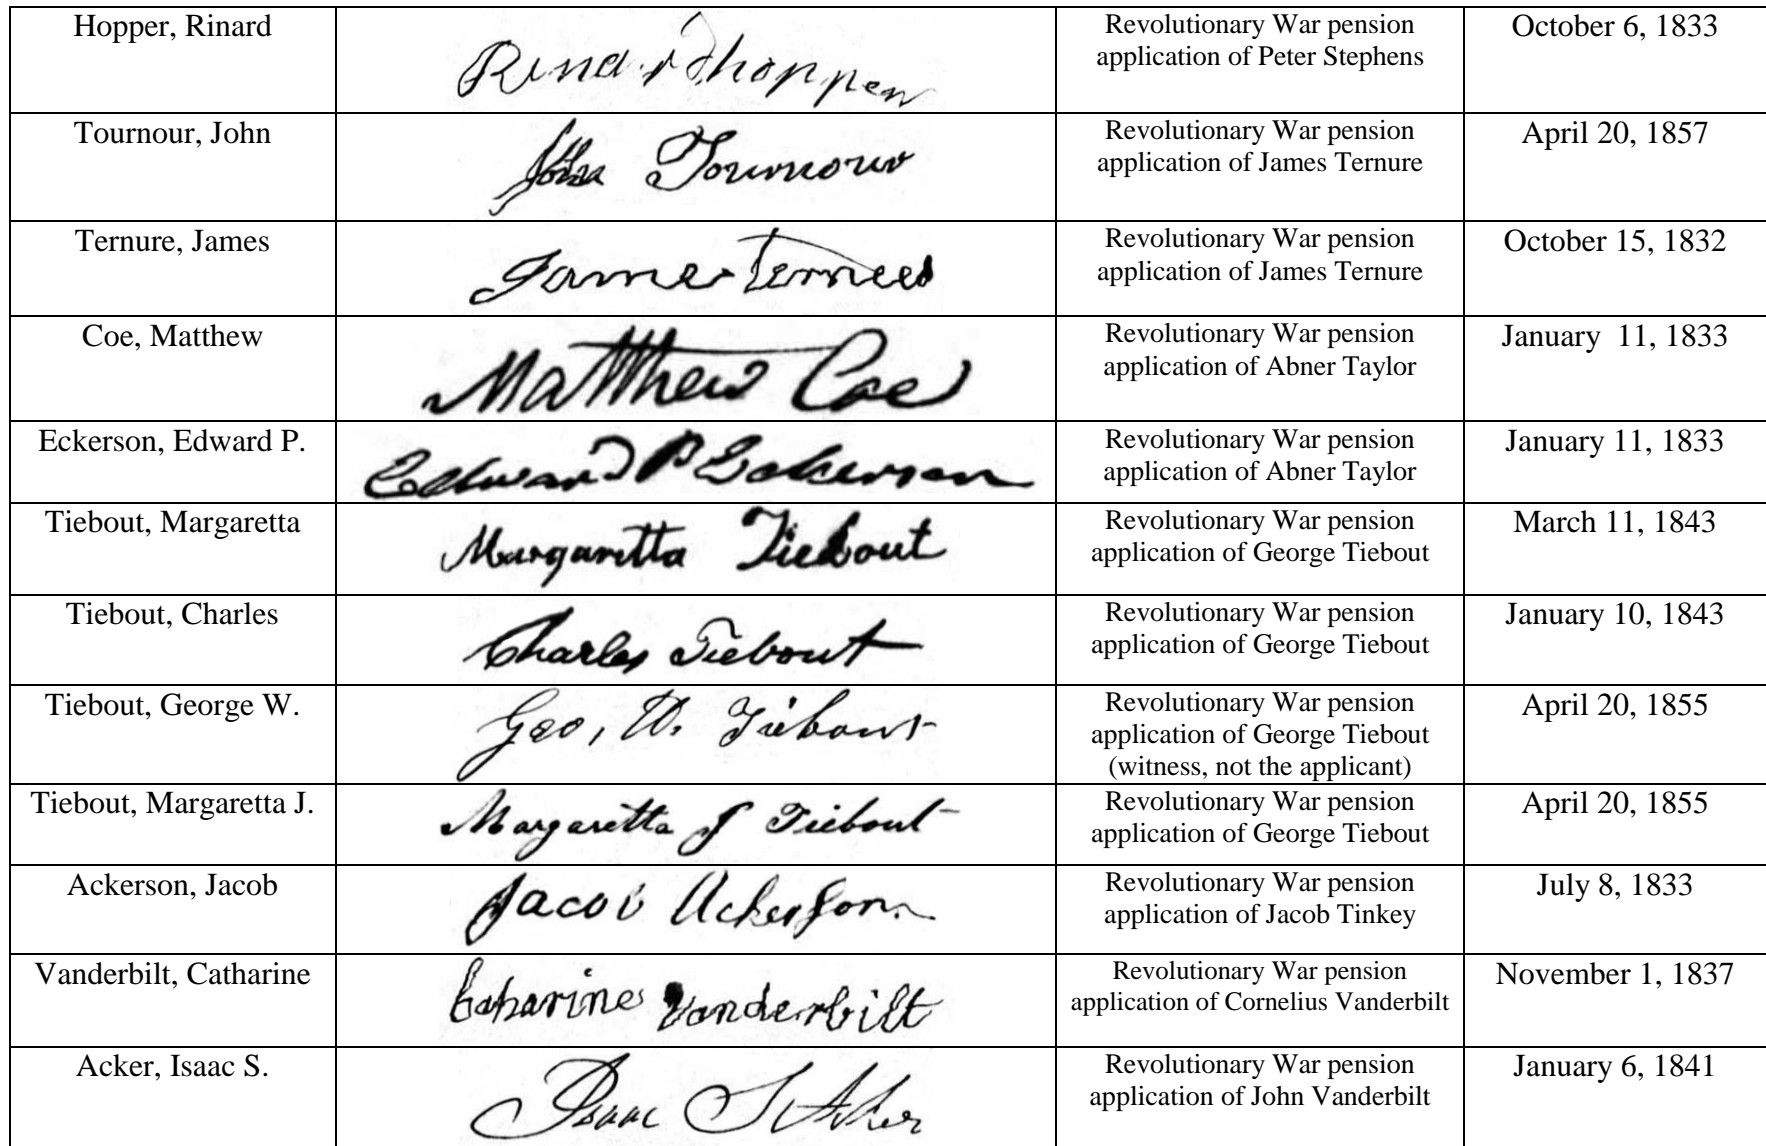 Hopper, Rinard
Rinard hopper
Revolutionary War pension
application of Peter Stephens
October 6, 1833
Tournour, John
John Tournour
Revolutionary War pension
application of James Ternure
April 20, 1857
Ternure, James
James
Revolutionary War pension
application of James Ternure
October 15, 1832
Coe, Matthew
Matthew Coe
Revolutionary War pension
application of Abner Taylor
January 11, 1833
Eckerson, Edward P.
Edward P Eckerson
Revolutionary War pension
application of Abner Taylor
January 11, 1833
Tiebout, Margaretta
Margaretta Tiebout
Revolutionary War pension
application of George Tiebout
March 11, 1843
Tiebout, Charles
Charles Tiebout
Revolutionary War pension
application of George Tiebout
January 10, 1843
Tiebout, George W.
Geo, W. Tiebout
Revolutionary War pension
application of George Tiebout
(witness, not the applicant)
April 20, 1855
Tiebout, Margaretta J.
Margaretta J Tiebout
Revolutionary War pension
application of George Tiebout
April 20, 1855
Ackerson, Jacob
Jacob Ackerson
Revolutionary War pension
application of Jacob Tinkey
July 8, 1833
Vanderbilt, Catharine
Catharine Vanderbilt
Revolutionary War pension
application of Cornelius Vanderbilt
November 1, 1837
Acker, Isaac S.
Isaac S Acker
Revolutionary War pension
application of John Vanderbilt
January 6, 1841